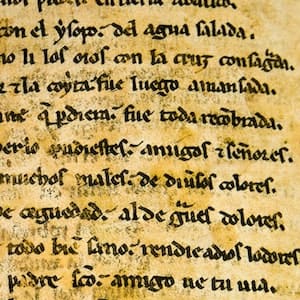 con el ysopo. del agua salada.
li los oios con la cruz consag̃da.
la coyta fue luego amansada.
q̃ pdiera. fue toda recobrada.
pudiestes. amigos ⁊ señores.
muchos males. de diũsos colores.
de ceguedad. al de g̃ues dolores.
todo biẽ sano. rendie adios lodores
padre sc̃o. amigo ue tu uia.